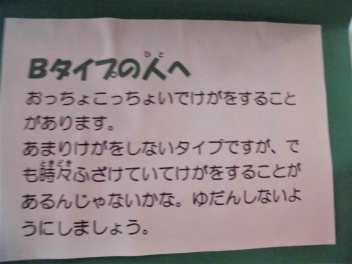 Bタイプの人へ
おっちょこっちょいでけがをすること
があります。
あまりけがをしないタイプですが、で
も時々ふざけていてけがをすることが
あるんじゃないかな。ゆだんしないよ
うにしましょう。